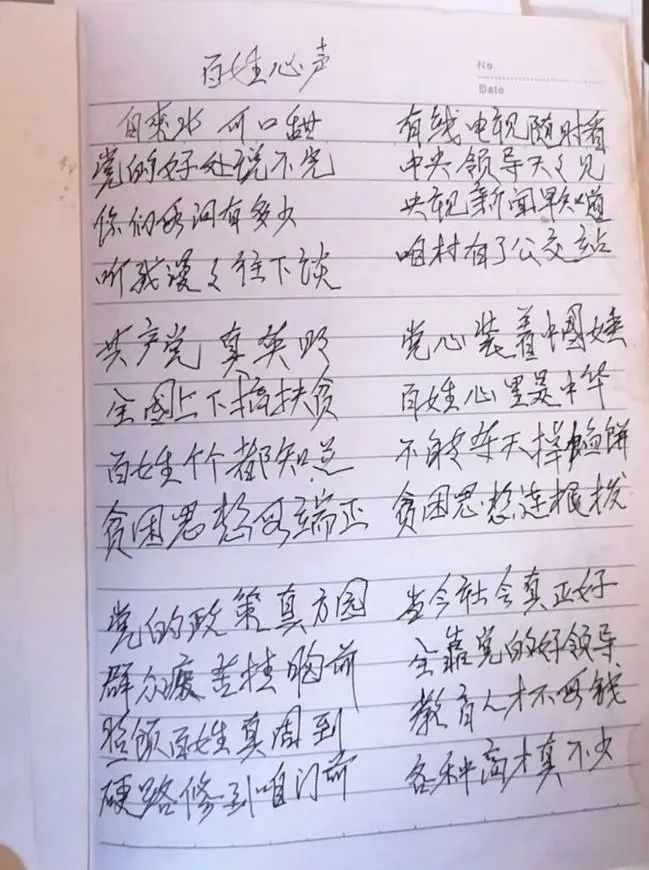 百姓心声
No.
Date
自来水 可口甜 有线电视随时看
党的好处说不完 中央领导天々见
你们要问有多少 央视新闻早知道
听我漫々往下谈 咱村有了公交站
共产党 真英明 党心装着中国
全国上下搞扶贫 百姓心里是中华
百姓个个都知道 不能等天掉馅饼
贫困思想要端正 贫困思想连根拔
党的政策真方圆 当今社会真正好
群众疾苦挂胸前 全靠党的好领导
照顾百姓真周到 教育人才不要钱
硬路修到咱门前 各种高才真不少